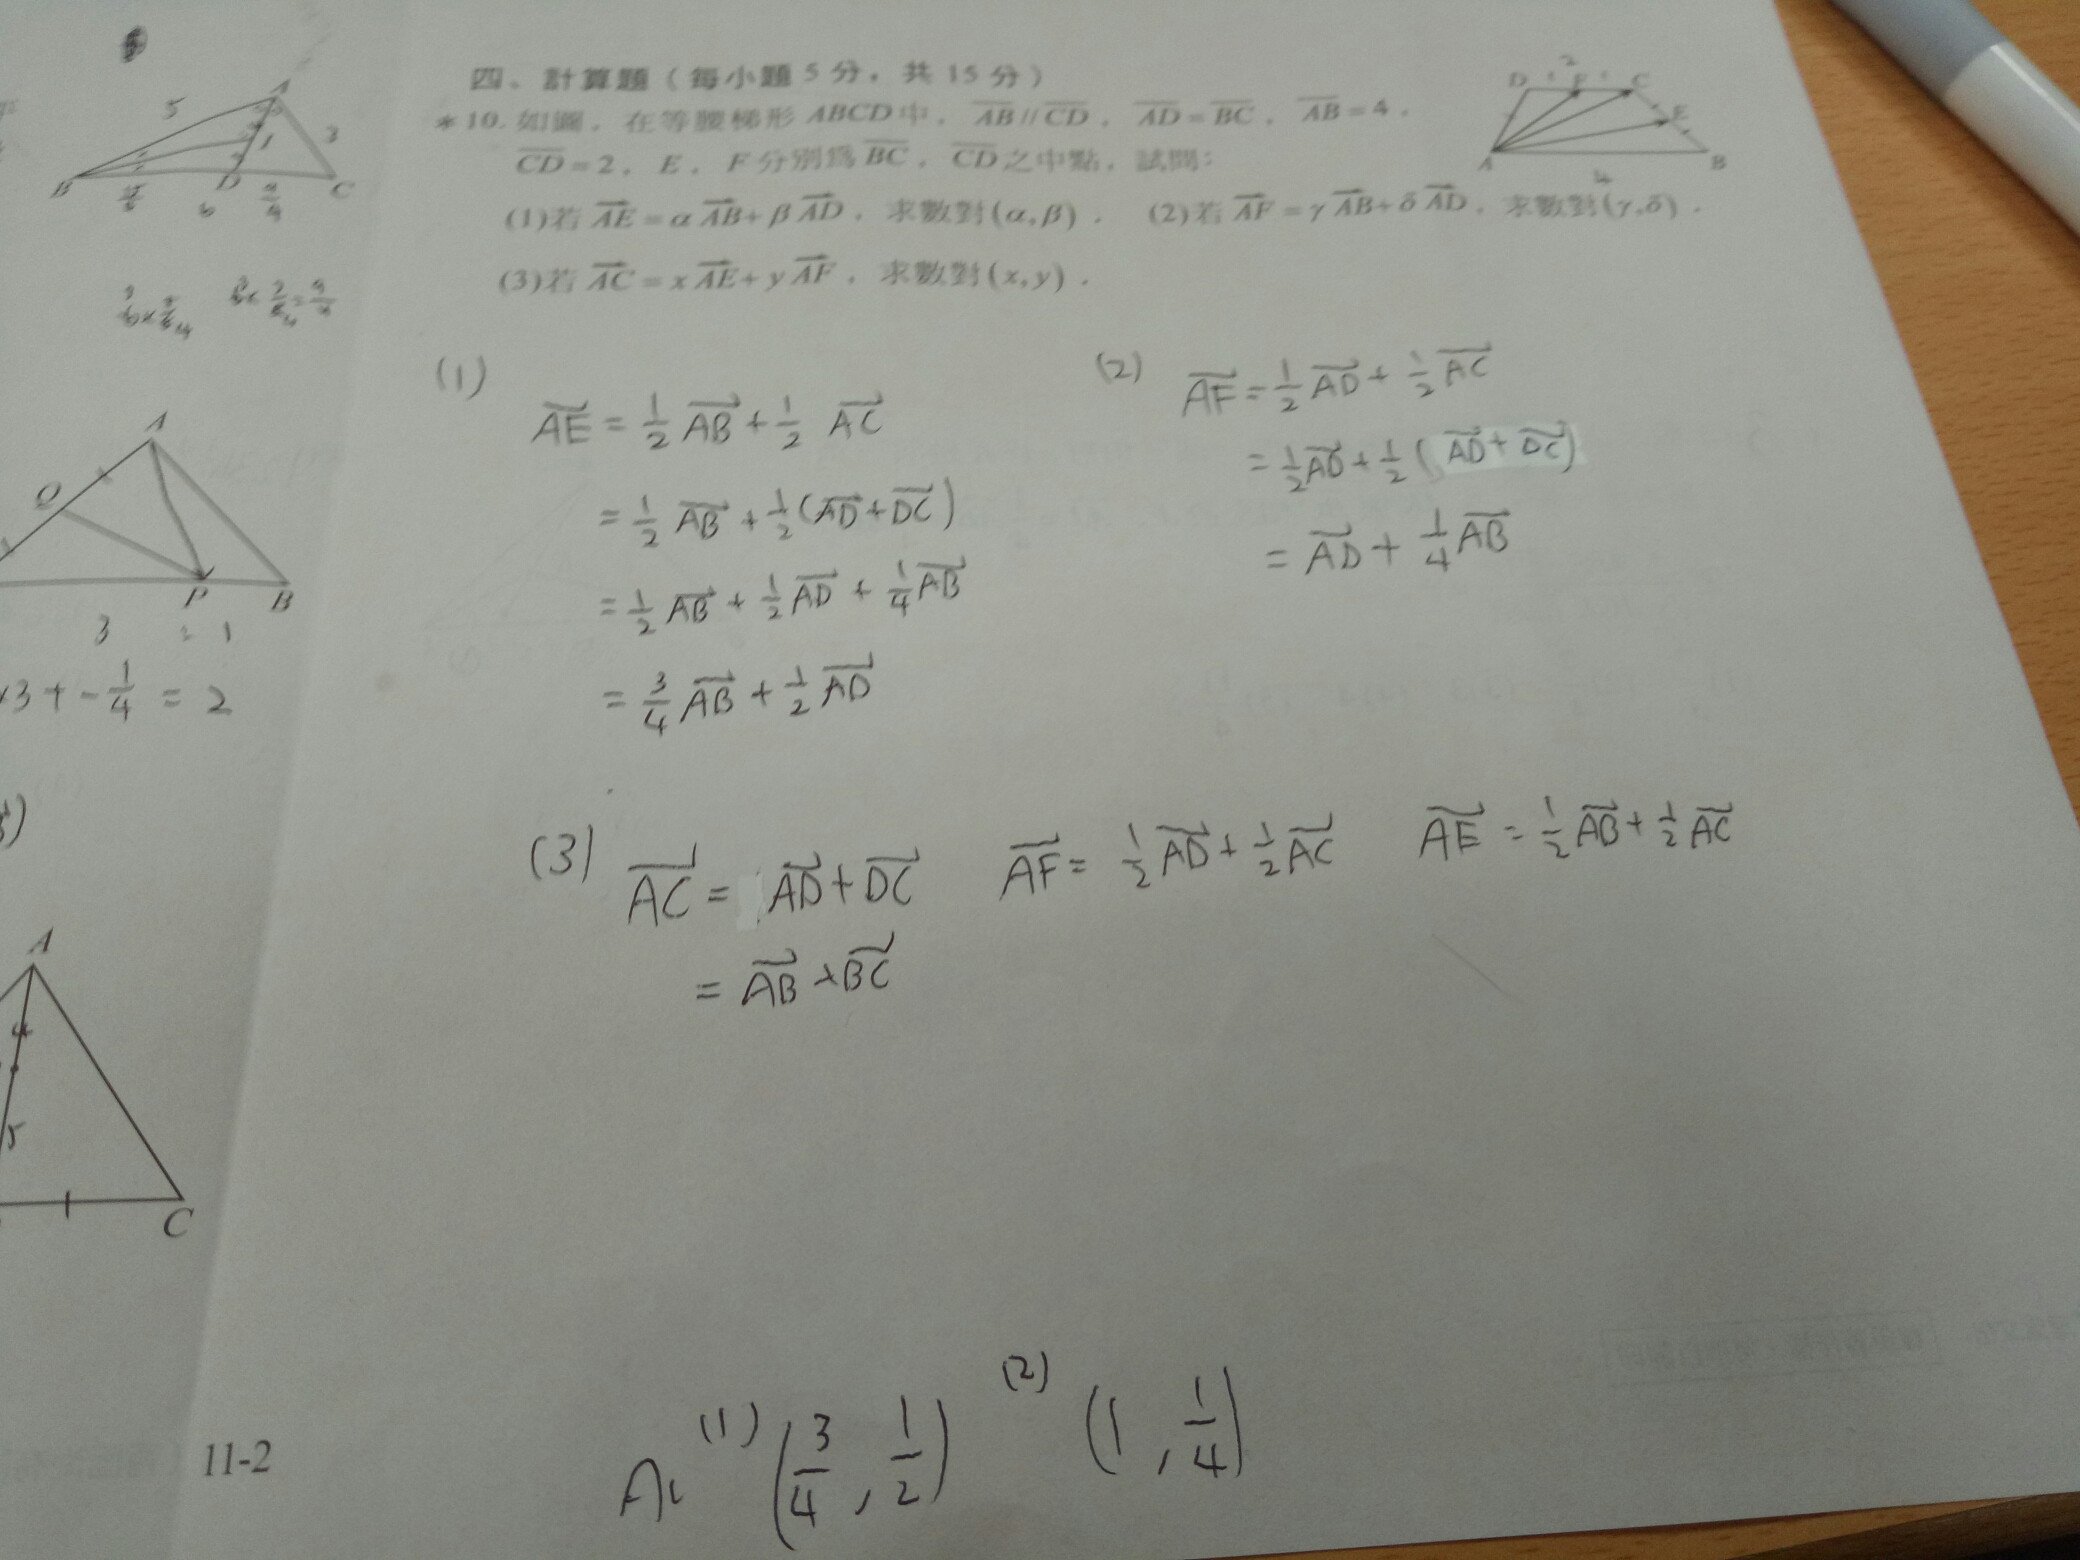 四、計算題（每小題 5 分，共 15 分）
＊10. 如圖，在等腰梯形 ABCD 中，AB // CD，AD = BC，AB = 4，
CD = 2，E，F 分別為 BC，CD 之中點，試問：
(1)若 AE = α AB + β AD，求數對(α,β)． (2)若 AF = γ AB + δ AD，求數對(γ,δ)．
(3)若 AC = x AE + y AF，求數對(x,y)．
D F C 2
E
A B 4
A
5 3
B D C
6
A
Q
P B
3 : 1
×3 + -1/4 = 2
A
4
5
C
(1)
AE = 1/2 AB + 1/2 AC
= 1/2 AB + 1/2 (AD + DC)
= 1/2 AB + 1/2 AD + 1/4 AB
= 3/4 AB + 1/2 AD
(2)
AF = 1/2 AD + 1/2 AC
= 1/2 AD + 1/2 (AD + DC)
= AD + 1/4 AB
(3) AC = AD + DC AF = 1/2 AD + 1/2 AC AE = 1/2 AB + 1/2 AC
= AB + BC
A: (1) (3/4, 1/2) (2) (1, 1/4)
11-2